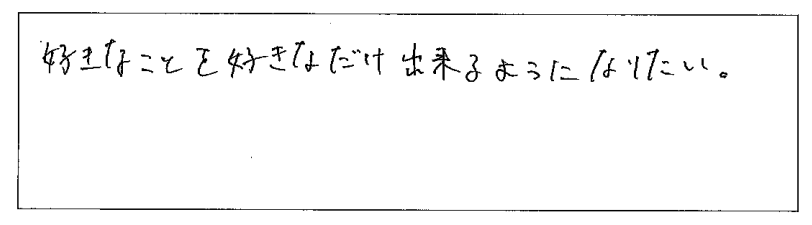 好きなことを好きなだけ出来るようになりたい。